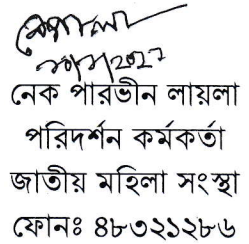 নেক পারভীন লায়লা
পরিদর্শন কর্মকর্তা
জাতীয় মহিলা সংস্থা
ফোনঃ ৪৮৩২১২৮৬